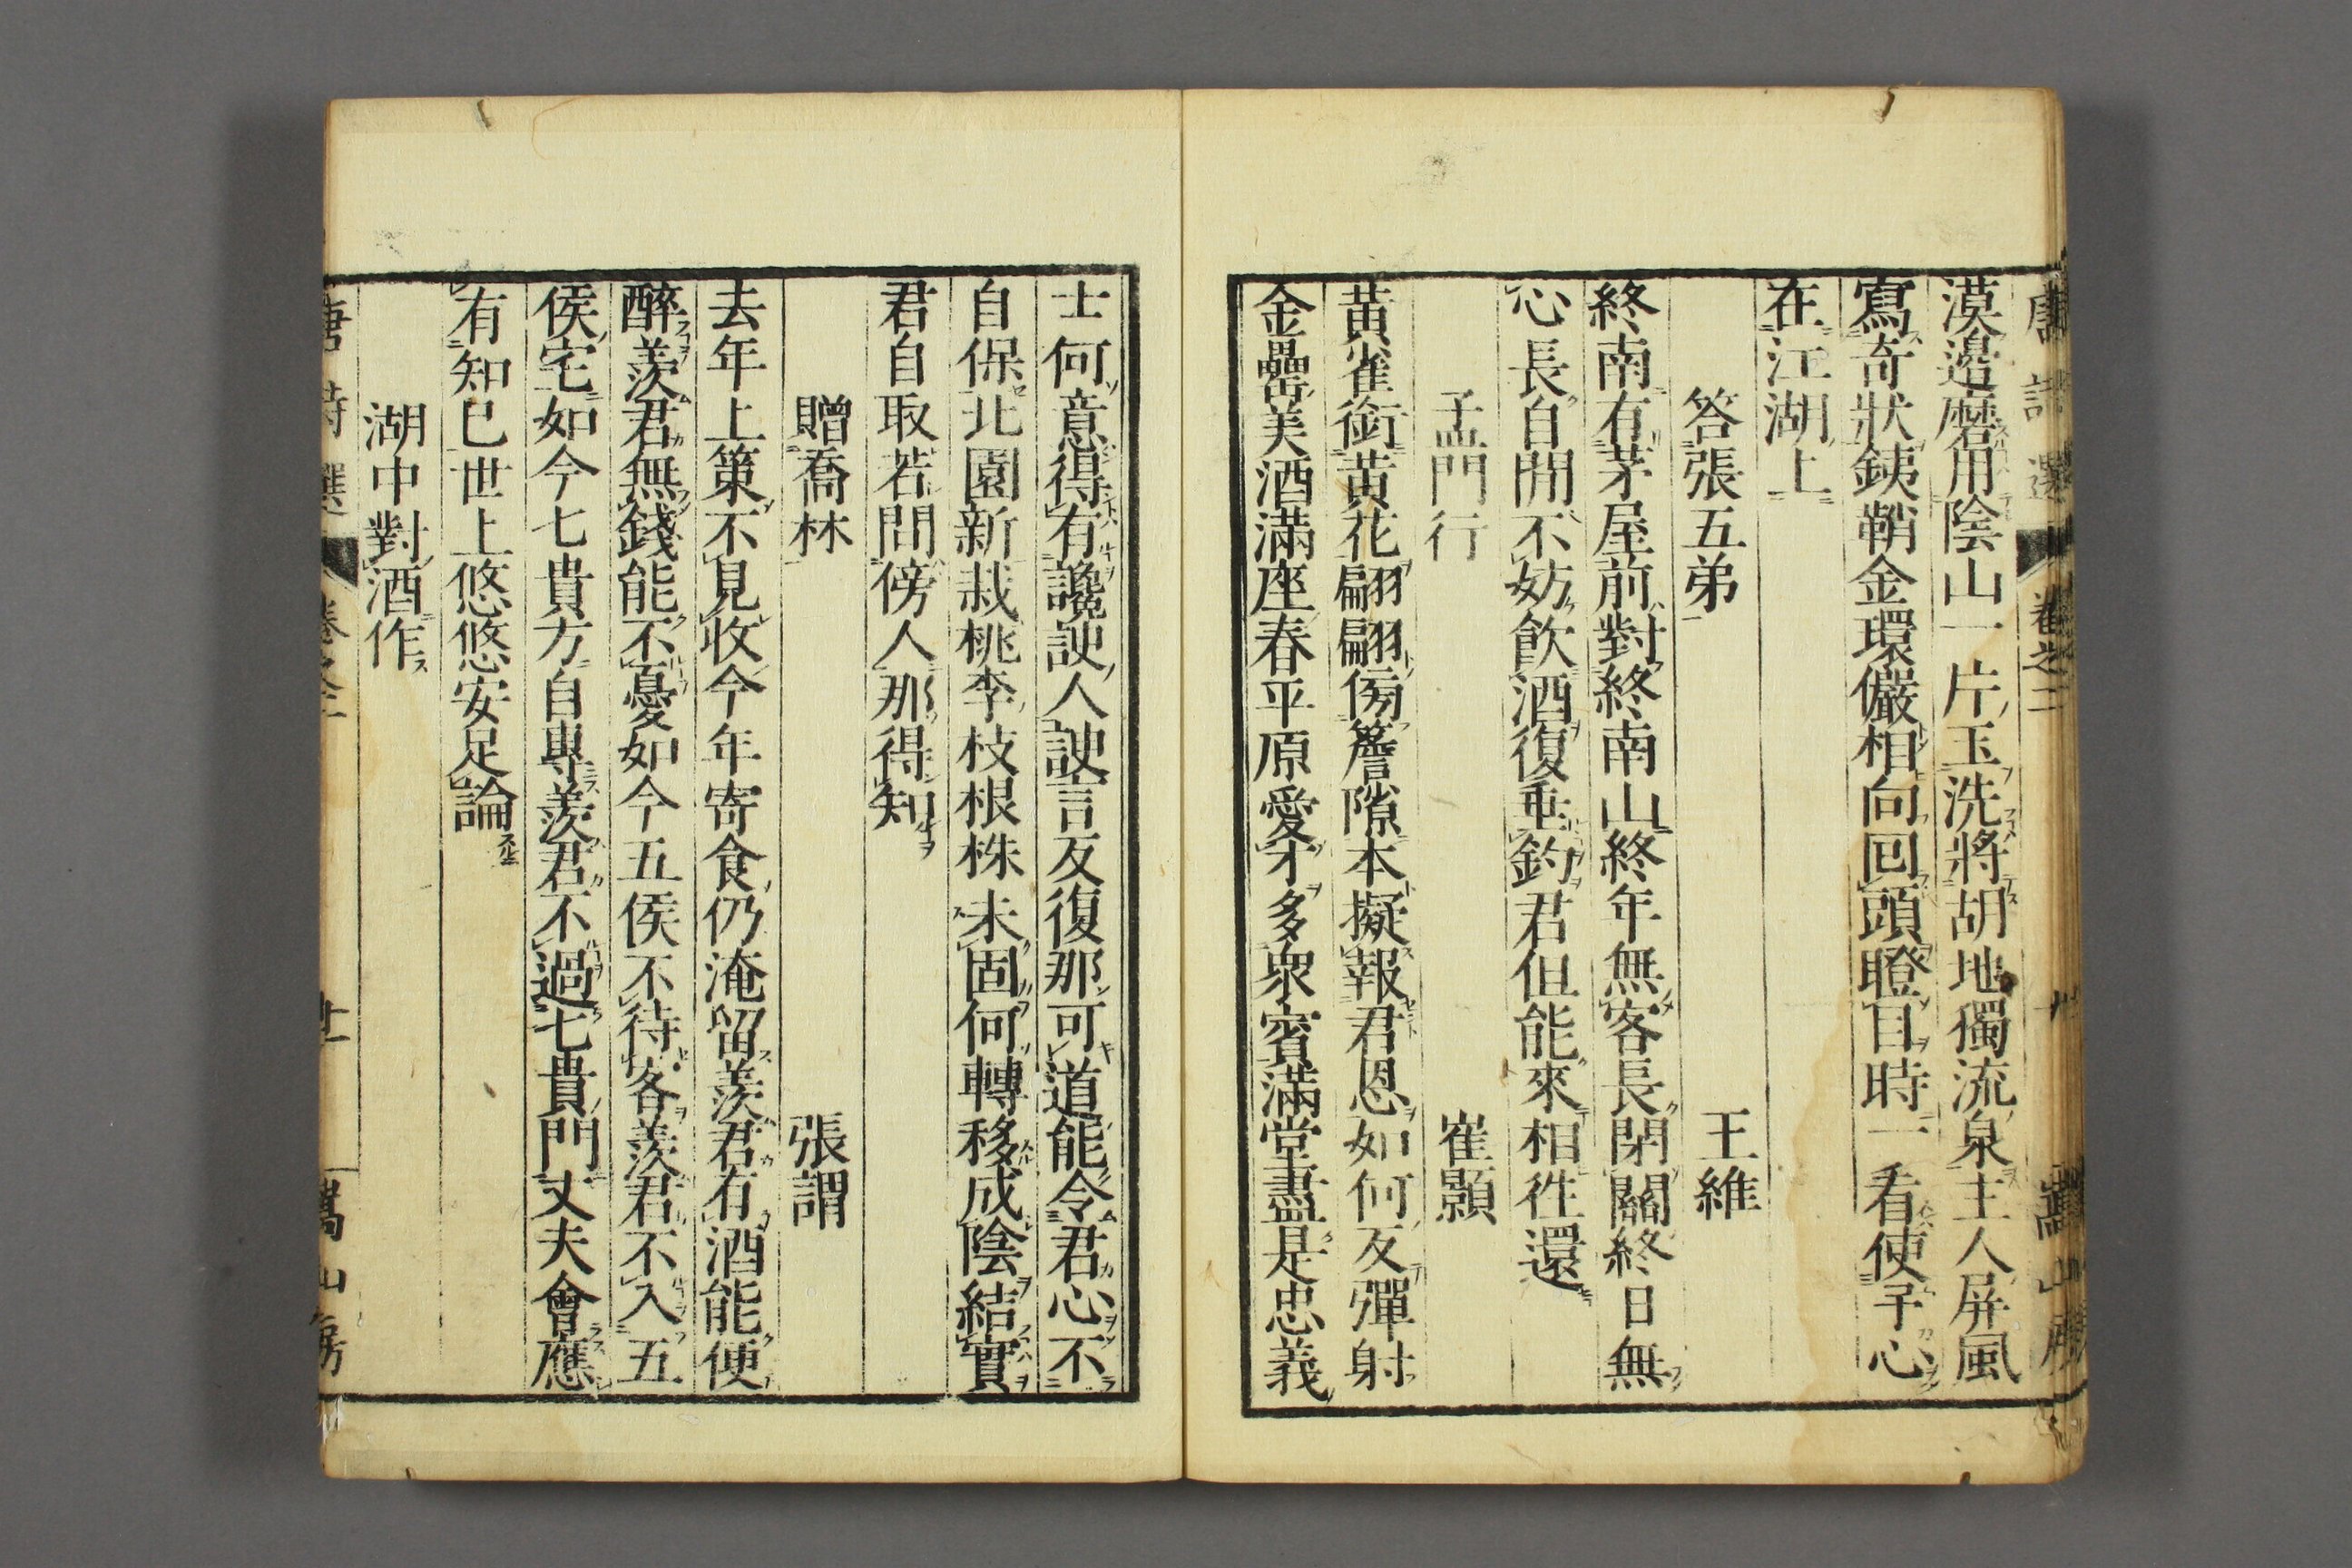 唐詩選 卷之二 卅 嵩山房
漠邊磨用陰山一片玉洗將胡地獨流泉主人屏風
寫奇狀鋏鞘金環儼相向回頭瞪目時一看使予心
在江湖上
答張五弟 王維
終南有茅屋前對終南山終年無客長閉關終日無
心長自閒不妨飮酒復垂釣君但能來相徃還
孟門行 崔顥
黃雀銜黃花翩翩傍簷隙本擬報君恩如何反彈射
金罍美酒滿座春平原愛才多衆賓滿堂盡是忠義
士何意得有讒諛人諛言反復那可道能令君心不
自保北園新栽桃李枝根株未固何轉移成陰結實
君自取若問傍人那得知
贈喬林 張謂
去年上策不見收今年寄食仍淹留羨君有酒能便
醉羨君無錢能不憂如今五侯不待客羨君不入五
侯宅如今七貴方自專羨君不過七貴門丈夫會應
有知己世上悠悠安足論
湖中對酒作
唐詩選 卷之二 廿一 嵩山房